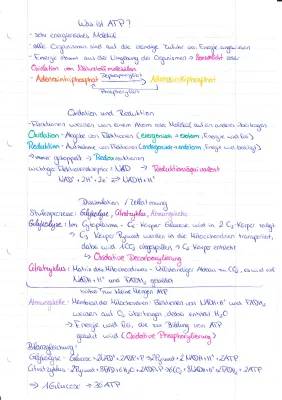 Was ist ATP?
- sehr energiereiches Molekül
- alle Organismen sind auf die ständige Zufuhr von Energie angewiesen
- Energie stammt aus der Umgebung des Organismus → Sonnenlicht oder
Oxidation von Nährstoffmolekülen
- Adenosintriphosphat Dephosphorylight Adenosindiphosphat
Phosphorylier
Oxidation und Reduktion
- Elektronen werden von einem Atom oder Molekül auf ein anderes übertragen
Oxidation - Abgabe von Elektronen (exergonisch + exotherm, Energie wird frei)
Reduktion - Aufnahme von Elektronen (endergonisch + endotherm, Energie wird benötigt)
→ immer gekoppelt → Redoxreaktionen
wichtiger Elektronenakzeptor: NAD → Reduktionsäquivalent
NAD⁺ + 2H⁺ + 2e⁻ ⇌ NADH + H⁺
Dissimilation / Zellatmung
Stufenprozesse: Glykolyse, Citratzyklus, Atmungskette
Glykolyse: Im Cytoplasma - C₆ Körper Glucose wird in 2 C₃ Körper zerlegt
→ C₃ Körper Pyruvat werden in die Mitochondrien transportiert,
dabei wird CO₂ abgespalten, C₂ Körper entsteht
→ Oxidative Decarboxylierung
Citratzyklus: Matrix der Mitochondrien - vollständiger Abbau zu CO₂, es wird viel
NADH + H⁺ und FADH₂ gebildet
bisher nur kleine Mengen ATP
Atmungskette: Membran der Mitochondrien: Elektronen von NADH + H⁺ und FADH₂
werden auf O₂ übertragen, dabei entsteht H₂O
→ Energie wird frei, die zur Bildung von ATP
genutzt wird (Oxidative Phosphorylierung)
Bilanzgleichung:
Glykolyse: Glucose + 2NAD⁺ + 2ADP + P → 2Pyruvat + 2NADH + H⁺ + 2ATP
Citratzyklus: 2Pyruvat + 8NAD⁺ + 6H₂O + 2ADP + P → 6CO₂ + 8NADH + H⁺ + 2FADH₂ + 2ATP
→ 1 Glucose → 30 ATP